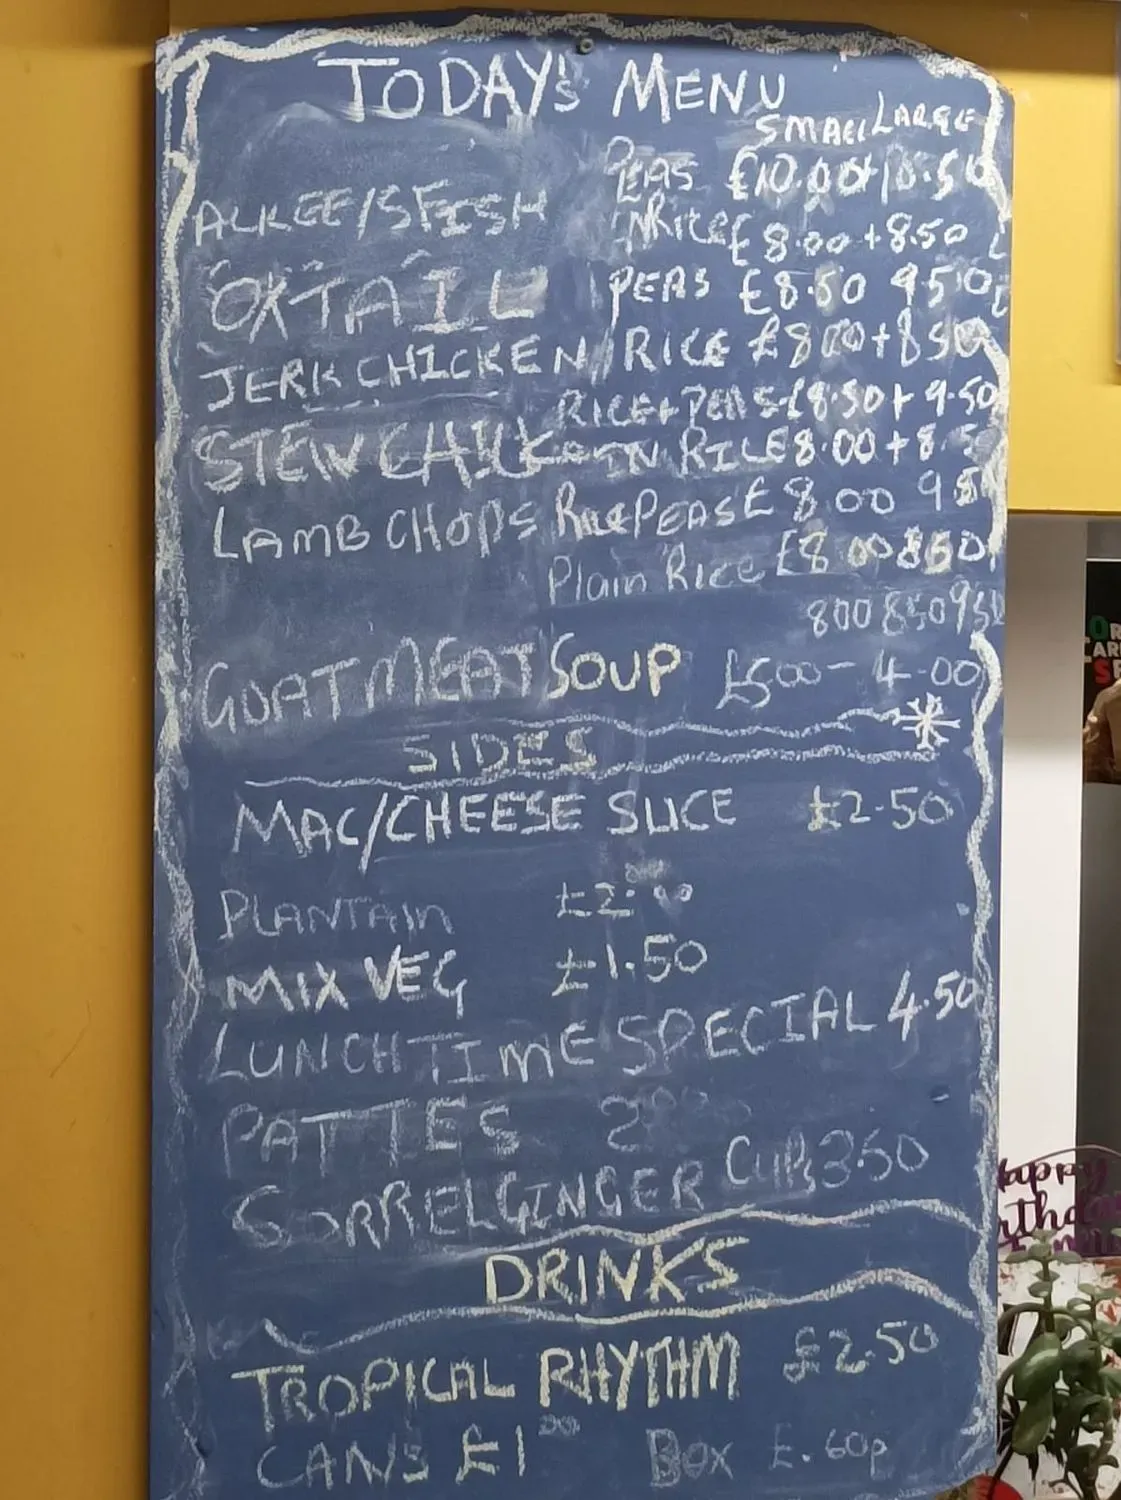 TODAY'S MENU
SMALL LARGE
PEAS £10.00+10.50
ALKEE/SFISH NRICE £8.00+8.50
OXTAIL PEAS £8.50 9.50
JERK CHICKEN RICE £8.00+8.50
RICE+PEAS £8.50+9.50
STEW CHICKEN RICE 8.00+8.5
LAMB CHOPS RICE PEAS £8.00 9.5
Plain Rice £8.00 8.50
800 850 950
GOAT MEAT SOUP £500-4.00
SIDES
MAC/CHEESE SLICE £2.50
PLANTAIN £2.00
MIX VEG £1.50
LUNCH TIME SPECIAL 4.50
PATTIES 2
SORREL GINGER Cup 3.50
DRINKS
TROPICAL RHYTHM £2.50
CANS £1.00 BOX £.60p
Happy